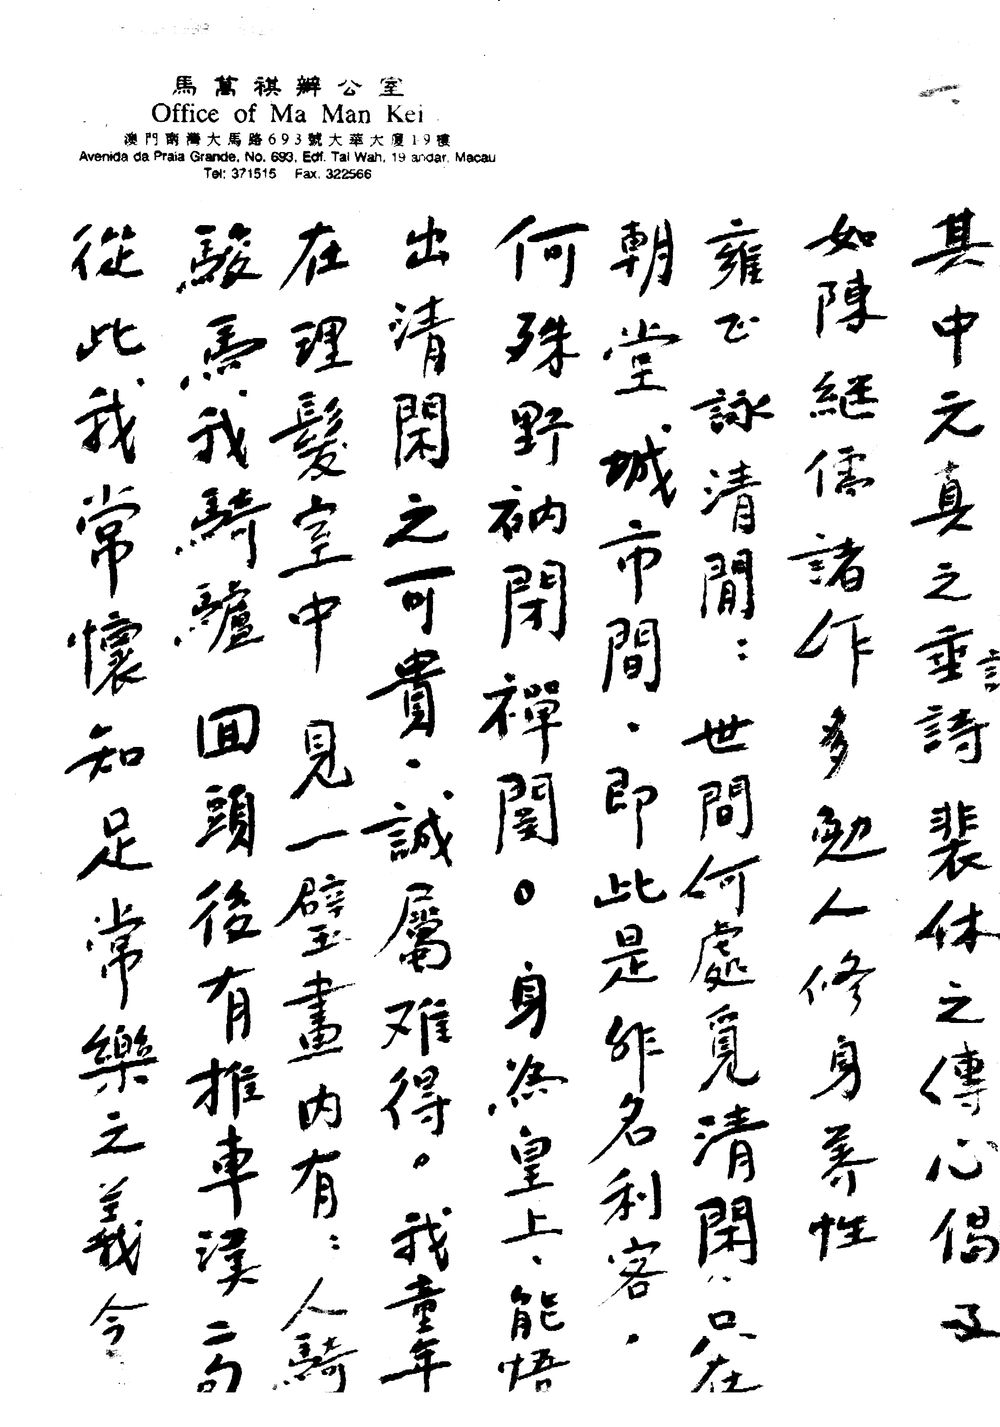 馬萬祺辦公室
Office of Ma Man Kei
澳門南灣大馬路693號大華大廈19樓
Avenida da Praia Grande, No. 693, Edf. Tai Wah, 19 andar, Macau
Tel: 371515 Fax. 322566
一、
其中元真之垂詩裴休之傳心偈及
如陳繼儒諸作多勉人修身养性
雍正詠清閒：世間何處覓清閑八只在
朝堂城市間．即此是非名利客．
何殊野衲閉禪関。身為皇上、能悟
出清閑之可貴．誠屬难得。我童年
在理髮室中見一璧畫內有：人騎
駿馬我騎驢回頭後有推車漢二句
從此我常懷知足常樂之義今